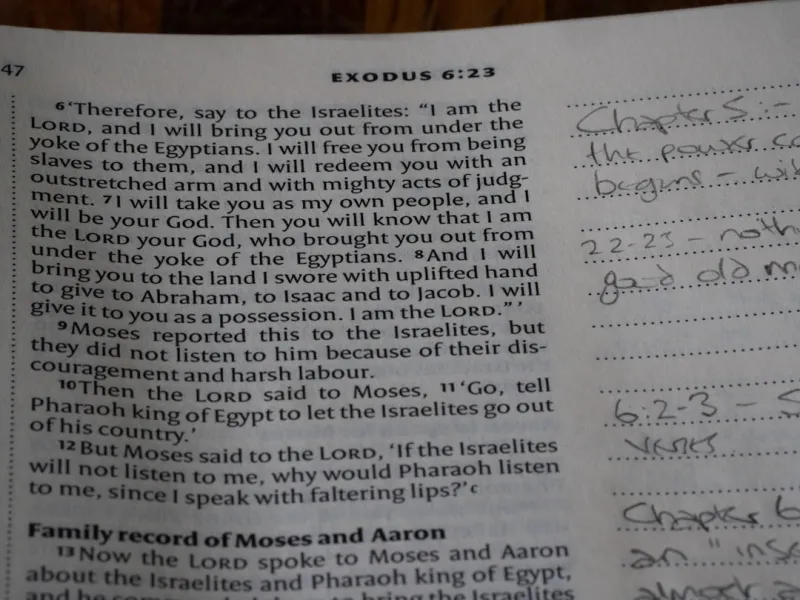 47
EXODUS 6:23
6‘Therefore, say to the Israelites: “I am the
LORD, and I will bring you out from under the
yoke of the Egyptians. I will free you from being
slaves to them, and I will redeem you with an
outstretched arm and with mighty acts of judg-
ment. 7I will take you as my own people, and I
will be your God. Then you will know that I am
the LORD your God, who brought you out from
under the yoke of the Egyptians. 8And I will
bring you to the land I swore with uplifted hand
to give to Abraham, to Isaac and to Jacob. I will
give it to you as a possession. I am the LORD.”’
9Moses reported this to the Israelites, but
they did not listen to him because of their dis-
couragement and harsh labour.
10Then the LORD said to Moses, 11‘Go, tell
Pharaoh king of Egypt to let the Israelites go out
of his country.’
12But Moses said to the LORD, ‘If the Israelites
will not listen to me, why would Pharaoh listen
to me, since I speak with faltering lips?’c
Family record of Moses and Aaron
13Now the LORD spoke to Moses and Aaron
about the Israelites and Pharaoh king of Egypt,
and he commanded them to bring the Israelites
Chapter 5:-
the power
begins -
22-23 -
good old
6:2-3 -
verses
Chapter 6
an
almost